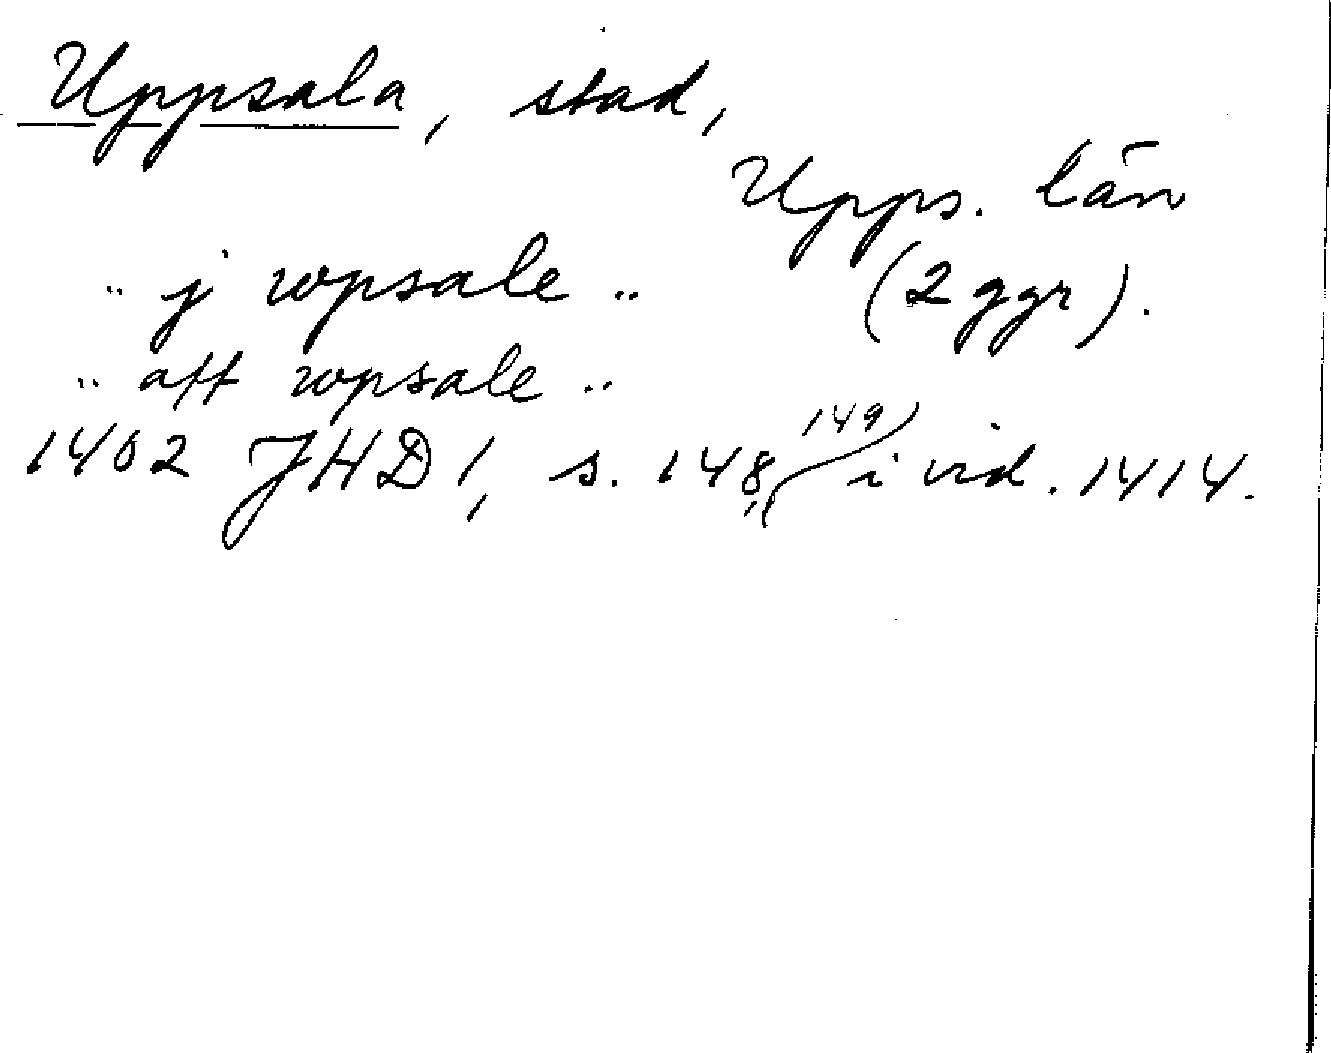 Uppsala, stad,
Upps. län
.. j wpsale .. (2 ggr).
.. aff wpsale ..
1402 JHD 1, s. 148, 149 i vid. 1414.